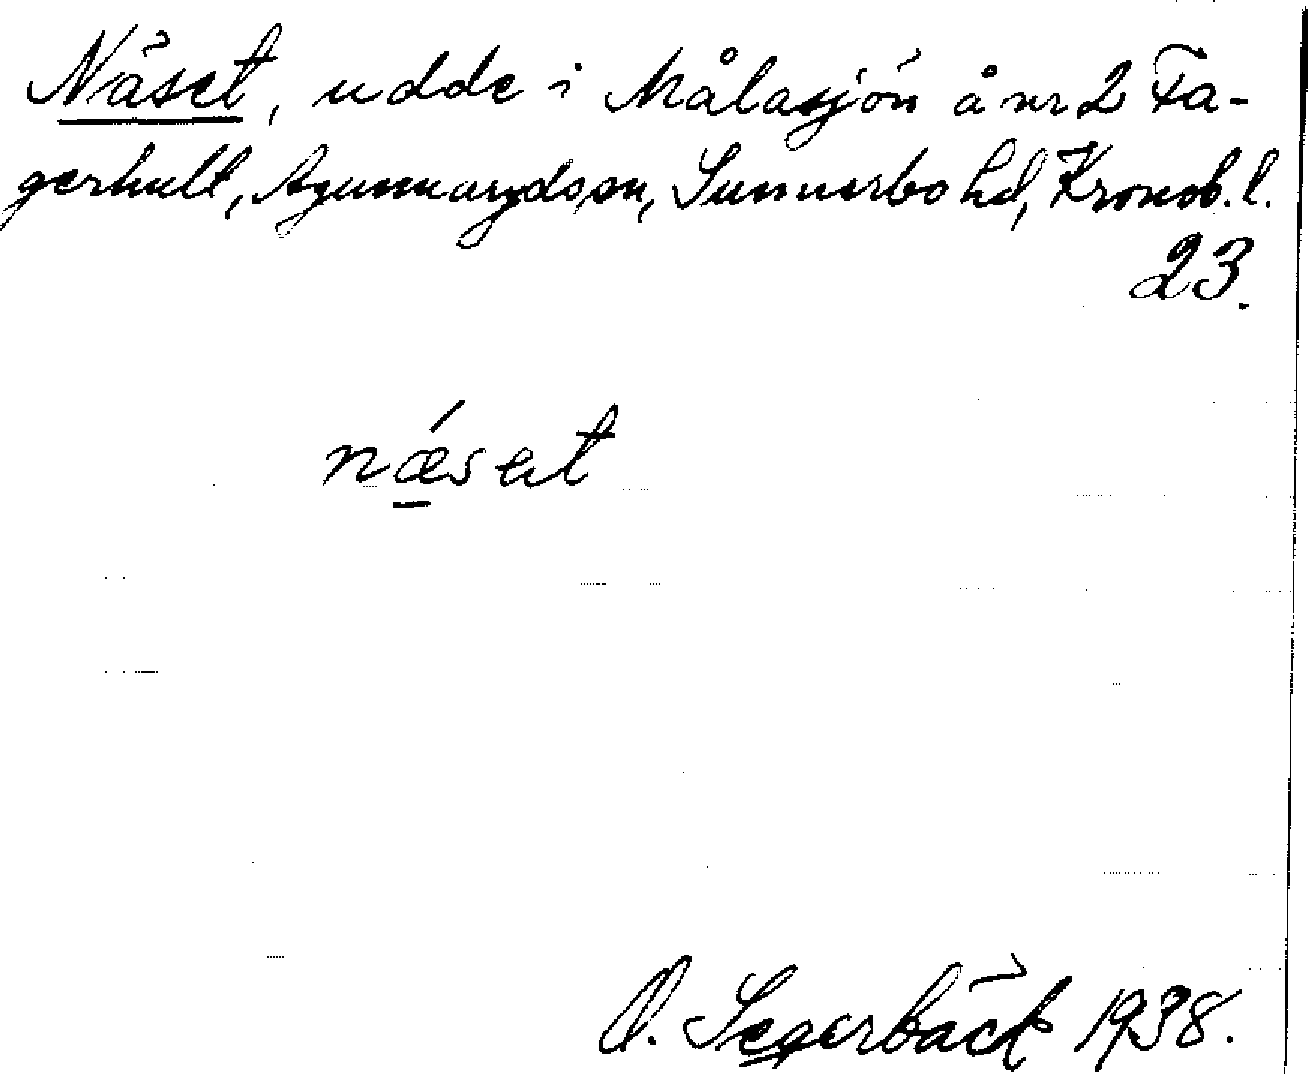 Näset, udde i Målasjön å nr 2 Fa-
gerhult, Agunnaryds sn, Sunnerbo hd, Kronob. l.
23.
næsət
O. Segerbäck 1938.